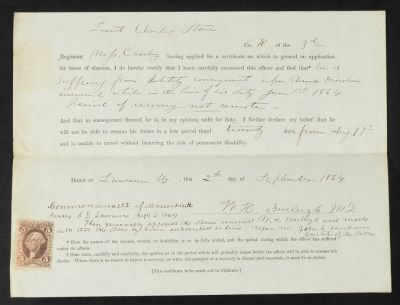 Lieut Charles Stone
Co. H of the 3rd
Regiment Mass. Cavalry having applied for a certificate on which to ground an application
for leave of absence, I do hereby certify that I have carefully examined this officer and find that he is
suffering from debility consequent upon
incurred while in the line of his duty June 1864
Period of recovery not remote
And that in consequence thereof, he is, in my opinion, unfit for duty. I further declare my belief that he
will not be able to resume his duties in a less period than twenty days from Aug 17th
and is unable to travel without incurring the risk of permanent disability.
Dated at Lawrence this 2nd day of September 1864
W. H. Burleigh M.D.
Commonwealth of Massachusetts
Essex S.S. Lawrence Sept 2 1864
Then personally appeared the above named W. H. Burleigh and made
oath that the above by him subscribed is true. Before me John
Justice of the Peace
* Here the nature of the disease, wound, or disability, is to be fully stated, and the period during which the officer has suffered
under its effects.
† Here state, candidly and explicitly, the opinion as to the period which will probably elapse before the officer will be able to resume
his duties. Where there is no reason to expect a recovery, or when the prospect of a recovery is distant and uncertain, it must be so stated.
[This certificate to be made out in triplicate.]